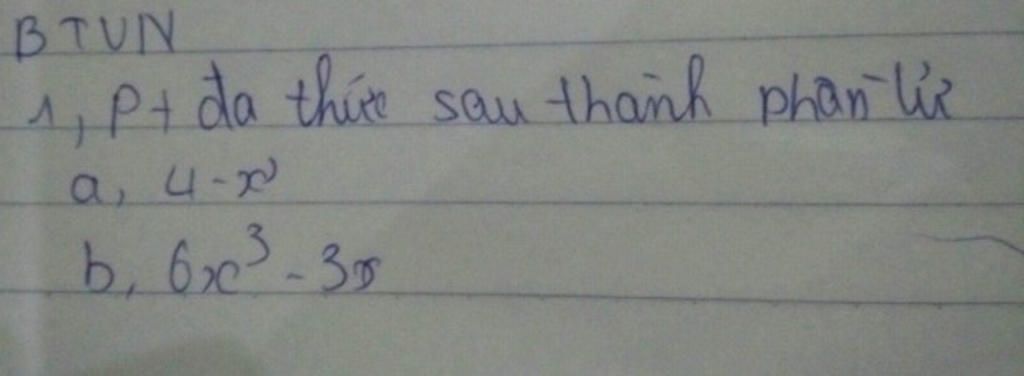 BTVN
1, pt đa thức sau thành phân tử
a, 4-x²
b, 6x³ - 3x